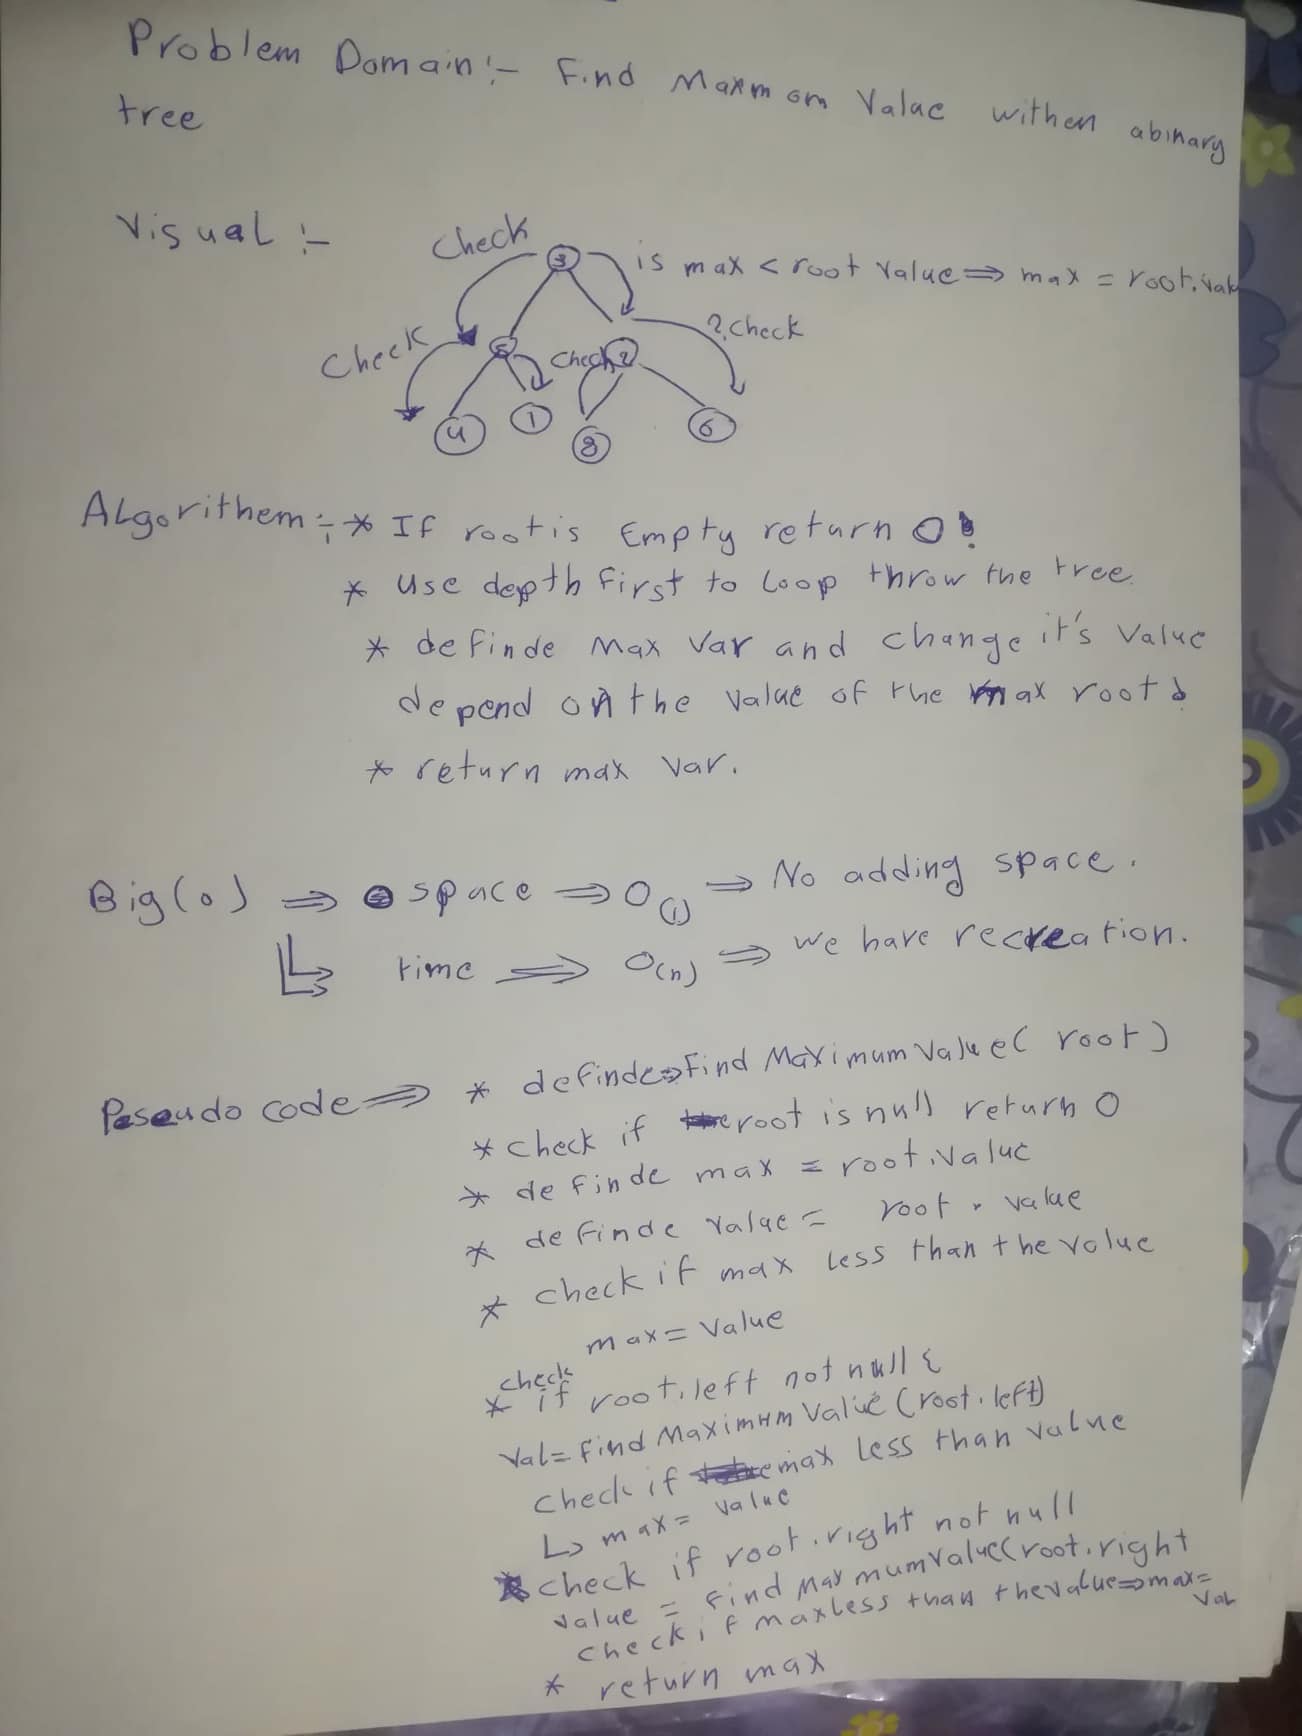 Problem Domain:- Find Maxmom Value withen abinary
tree
Visual :-
Check
3
is max < root value ⇒ max = root.valu
Check
5
Check
2
?check
4
1
8
6
ALgorithem:- * If root is Empty return 0!
* use depth first to Loop throw the tree.
* definde Max Var and change it's value
depend on the value of the max root!
* return max var.
Big(o) ⇒ space ⇒ O(1) ⇒ No adding space.
time ⇒ O(n) ⇒ we have recreation.
Peseudo code ⇒ * definde⇒Find MaximumValue( root)
* check if root is null return 0
* definde max = root.value
* definde value = root . value
* check if max Less than the value
max = value
* check if root.left not null {
Val = find MaximumValue (root.left)
check if max Less than value
↳ max = value
* check if root.right not null
value = find MaxmumValue(root.right
check if max Less than the value⇒max=
val
* return max